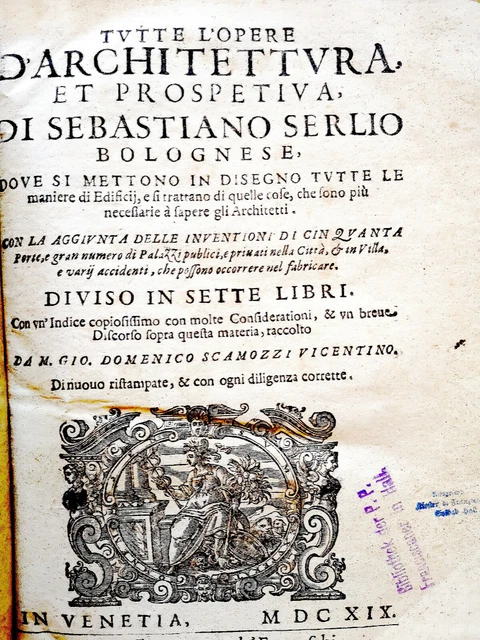 TVTTE L'OPERE
D'ARCHITETTVRA,
ET PROSPETIVA,
DI SEBASTIANO SERLIO
BOLOGNESE,
DOVE SI METTONO IN DISEGNO TVTTE LE
maniere di Edificij, e si trattano di quelle cose, che sono più
necessarie à sapere gli Architetti.
CON LA AGGIVNTA DELLE INVENTIONI DI CINQVANTA
Porte, e gran numero di Palazzi publici, e priuati nella Città, & in Villa,
e varij accidenti, che possono occorrere nel fabricare.
DIVISO IN SETTE LIBRI.
Con vn' Indice copiosissimo con molte Considerationi, & vn breue
Discorso sopra questa materia, raccolto
DA M. GIO. DOMENICO SCAMOZZI VICENTINO.
Di nuouo ristampate, & con ogni diligenza corrette.
Bibliothek der P. P.
Franziskaner in Hall.
IN VENETIA, MDCXIX.